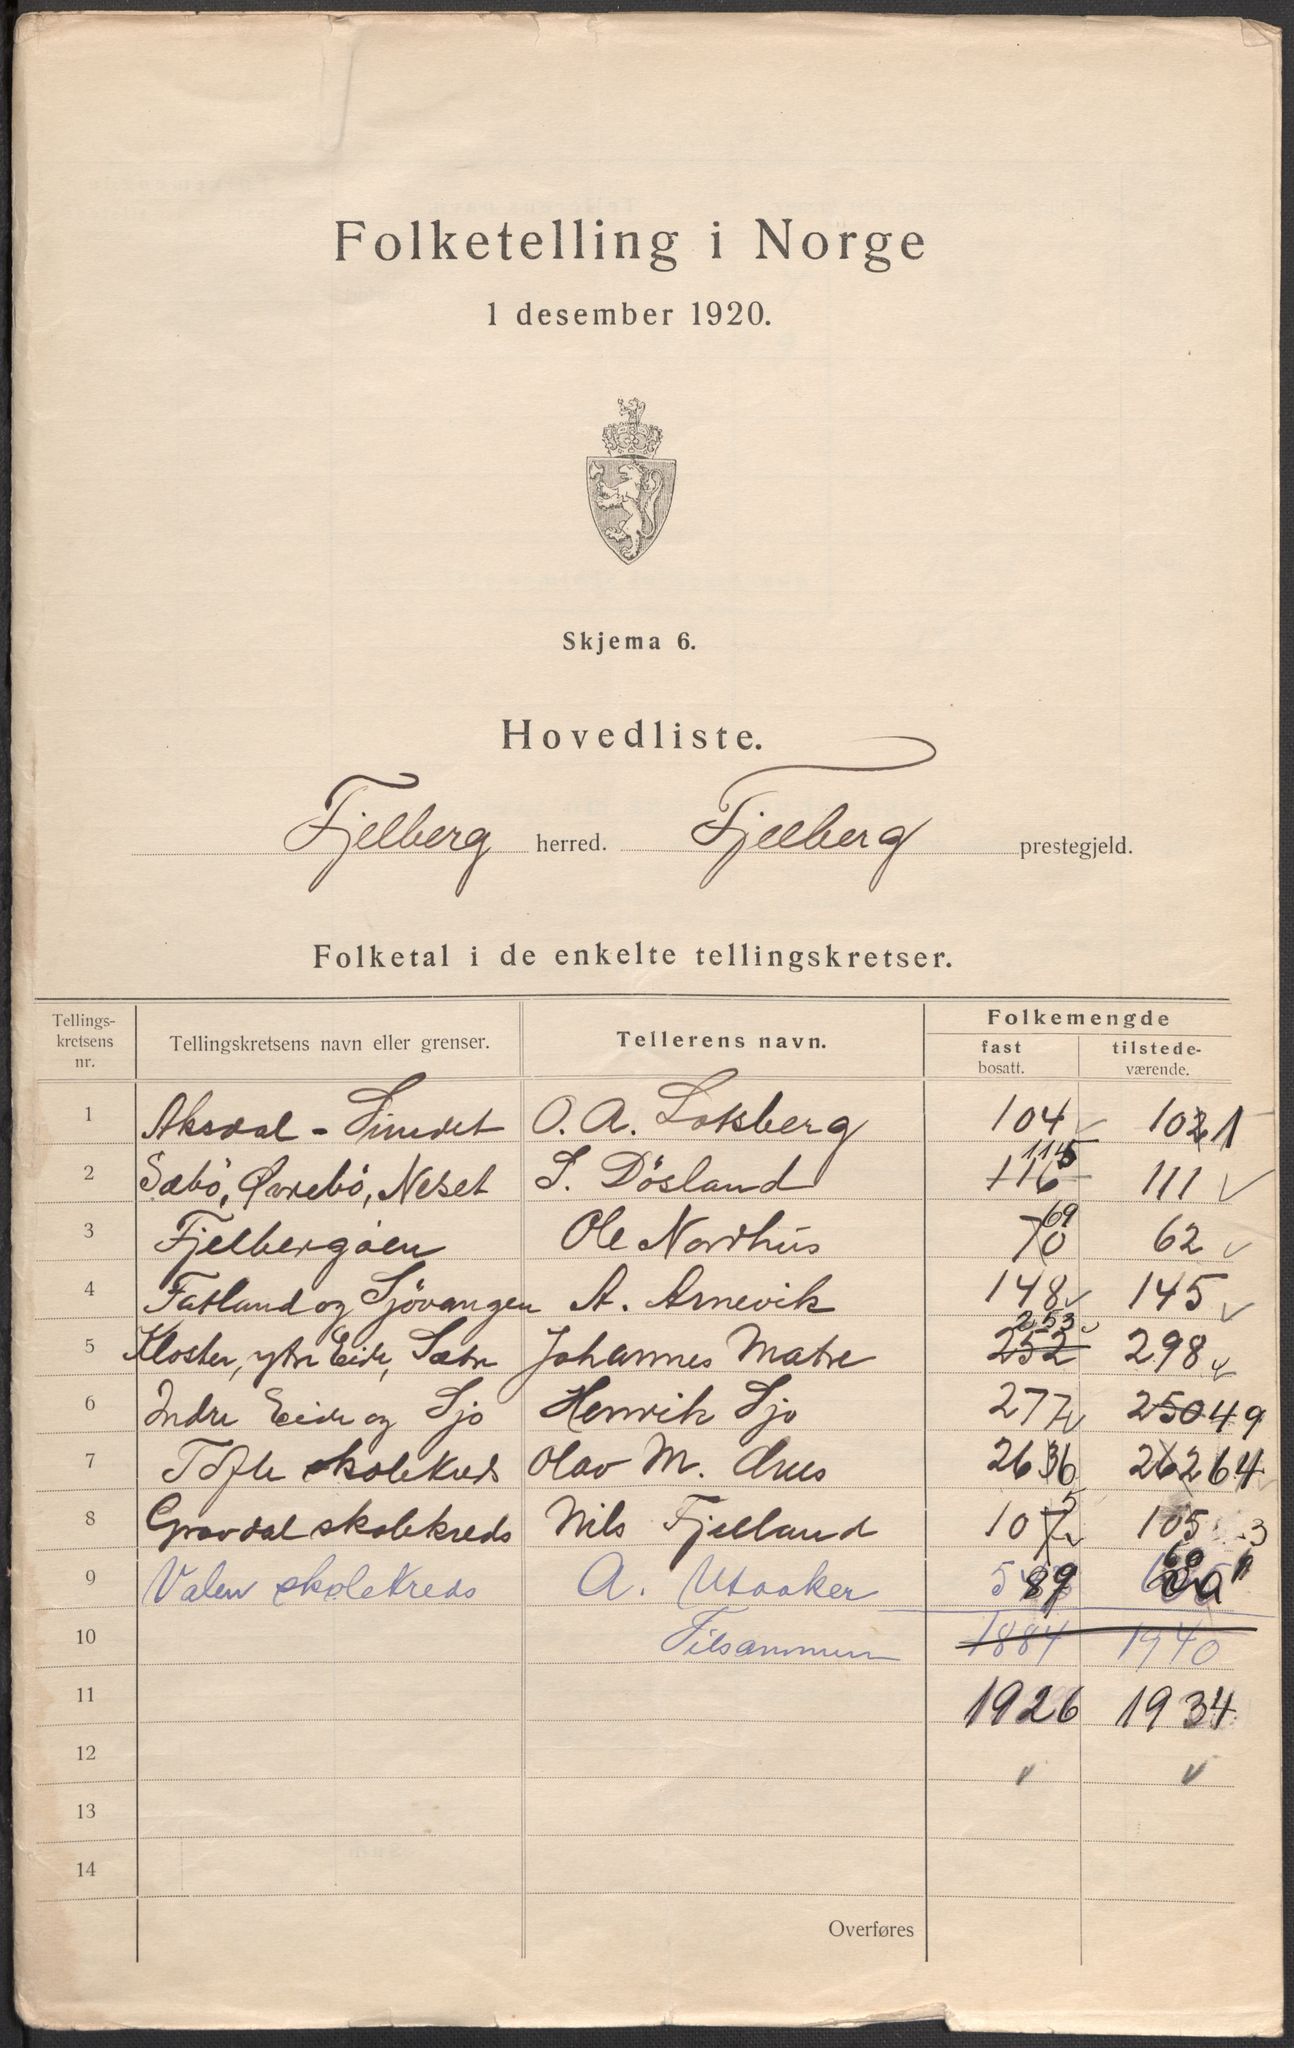 Folketelling i Norge
1 desember 1920.
Skjema 6.
Hovedliste.
Fjelberg herred. Fjelberg prestegjeld.
Folketal i de enkelte tellingskretser.
Tellings-
kretsens
nr.
Tellingskretsens navn eller grenser.
Tellerens navn.
Folkemengde
fast
bosatt.
tilstede-
værende.
1 Aksdal - O. A. 104 101
2 Sæbö, Øvrebö, Neset S. Dösland 116 115 111
3 Fjelbergöen Ole Nordhus 70 69 62
4 Fatland og Sjövangen A. Arnevik 148 145
5 Kloster, ytre Eide, Sætre Johannes Matre 252 253 298
6 Indre Eide og Sjo Henrik Sjo 277 250 49
7 Tofte skolekreds Olav M. 266 262 64
8 Gravdal skolekreds Nils Fjelland 107 5 105 3
9 Valen skolekreds A. Utaaker 589
10 Tilsammen 1884 1940
11 1926 1934
12
13
14
Overføres